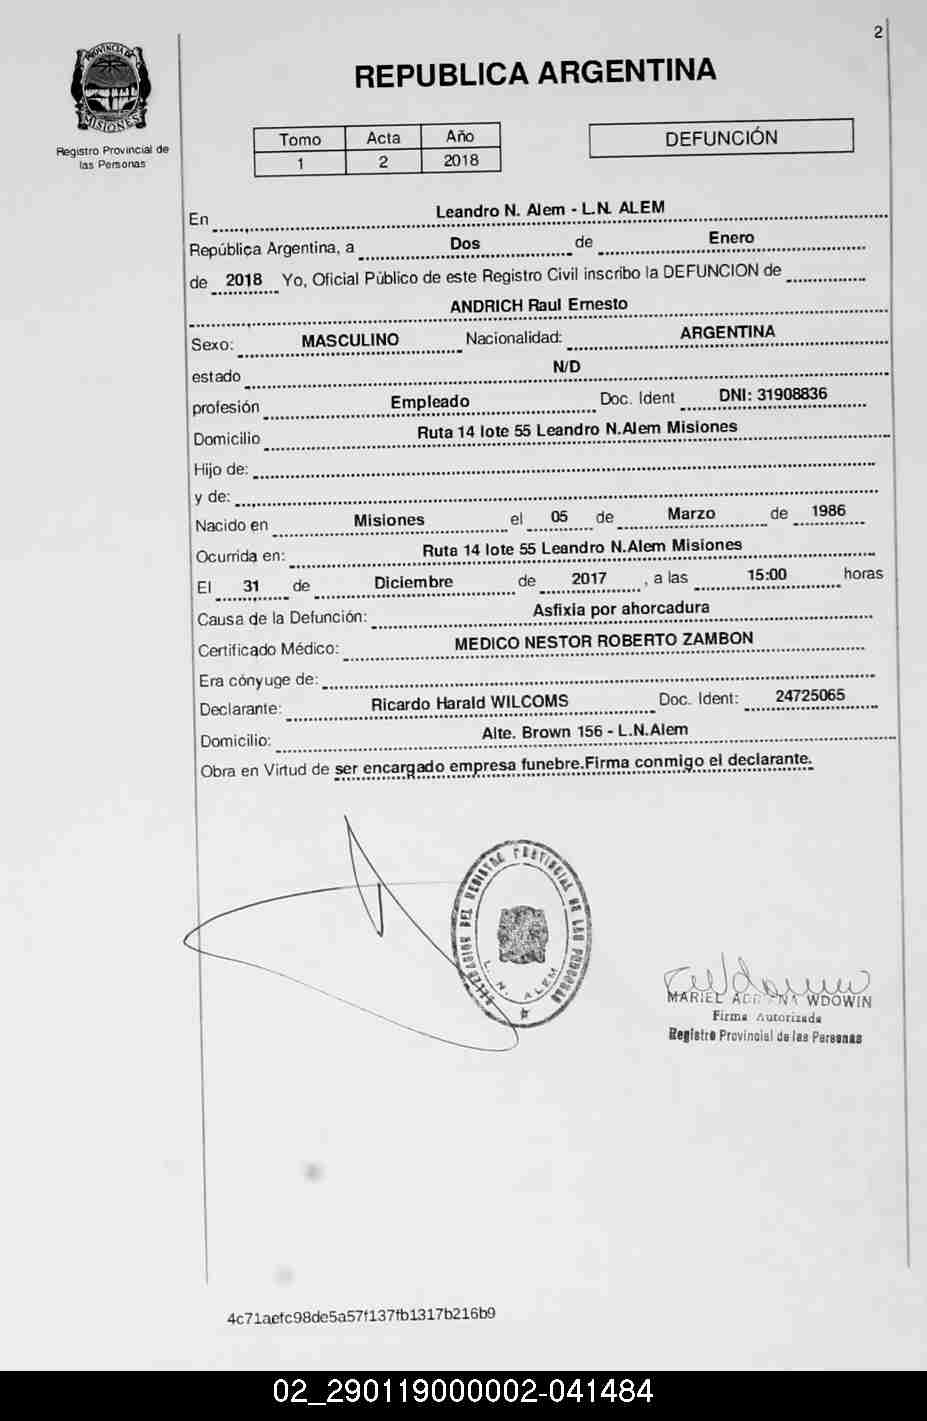 2
PROVINCIA DE
MISIONES
Registro Provincial de
las Personas
REPUBLICA ARGENTINA
Tomo Acta Año
1 2 2018
DEFUNCIÓN
En Leandro N. Alem - L.N. ALEM
República Argentina, a Dos de Enero
de 2018 Yo, Oficial Público de este Registro Civil inscribo la DEFUNCION de
ANDRICH Raul Ernesto
Sexo: MASCULINO Nacionalidad: ARGENTINA
estado N/D
profesión Empleado Doc. Ident DNI: 31908836
Domicilio Ruta 14 lote 55 Leandro N.Alem Misiones
Hijo de:
y de:
Nacido en Misiones el 05 de Marzo de 1986
Ocurrida en: Ruta 14 lote 55 Leandro N.Alem Misiones
El 31 de Diciembre de 2017 , a las 15:00 horas
Causa de la Defunción: Asfixia por ahorcadura
Certificado Médico: MEDICO NESTOR ROBERTO ZAMBON
Era cónyuge de:
Declarante: Ricardo Harald WILCOMS Doc. Ident: 24725065
Domicilio: Alte. Brown 156 - L.N.Alem
Obra en Virtud de ser encargado empresa funebre.Firma conmigo el declarante.
DELEGACION DEL REGISTRO PROVINCIAL DE LAS PERSONAS
L. N. ALEM
MARIEL WDOWIN
Firma Autorizada
Registro Provincial de las Personas
4c71aefc98de5a57f137fb1317b216b9
02_290119000002-041484